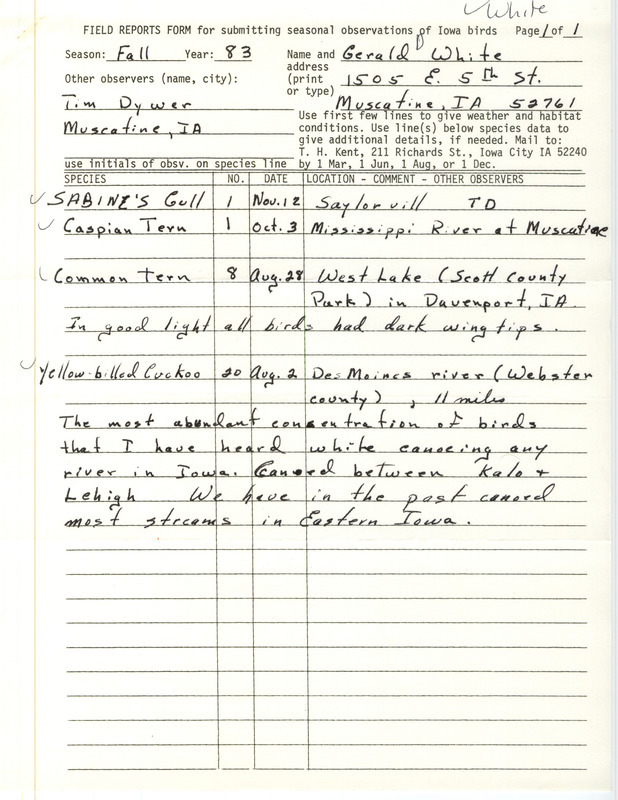 White
FIELD REPORTS FORM for submitting seasonal observations of Iowa birds Page 1 of 1
Season: Fall Year: 83
Name and address (print or type) Gerald D White
1505 E. 5th St.
Muscatine, IA 52761
Other observers (name, city):
Tim Dywer
Muscatine, IA
use initials of obsv. on species line
Use first few lines to give weather and habitat
conditions. Use line(s) below species data to
give additional details, if needed. Mail to:
T. H. Kent, 211 Richards St., Iowa City IA 52240
by 1 Mar, 1 Jun, 1 Aug, or 1 Dec.
SPECIES NO. DATE LOCATION - COMMENT - OTHER OBSERVERS
✓ SABINE'S Gull 1 Nov. 12 Saylorvill TD
✓ Caspian Tern 1 Oct. 3 Mississippi River at Muscatine
✓ Common tern 8 Aug. 28 West Lake (Scott County
Park) in Davenport, IA.
In good light all birds had dark wing tips.
✓ Yellow-billed Cuckoo 20 Aug. 2 Des Moines river (Webster
county) , 11 miles
The most abundant consentration of birds
that I have heard white canoeing any
river in Iowa. Canoed between Kalo +
Lehigh We have in the past canoed
most streams in Eastern Iowa.